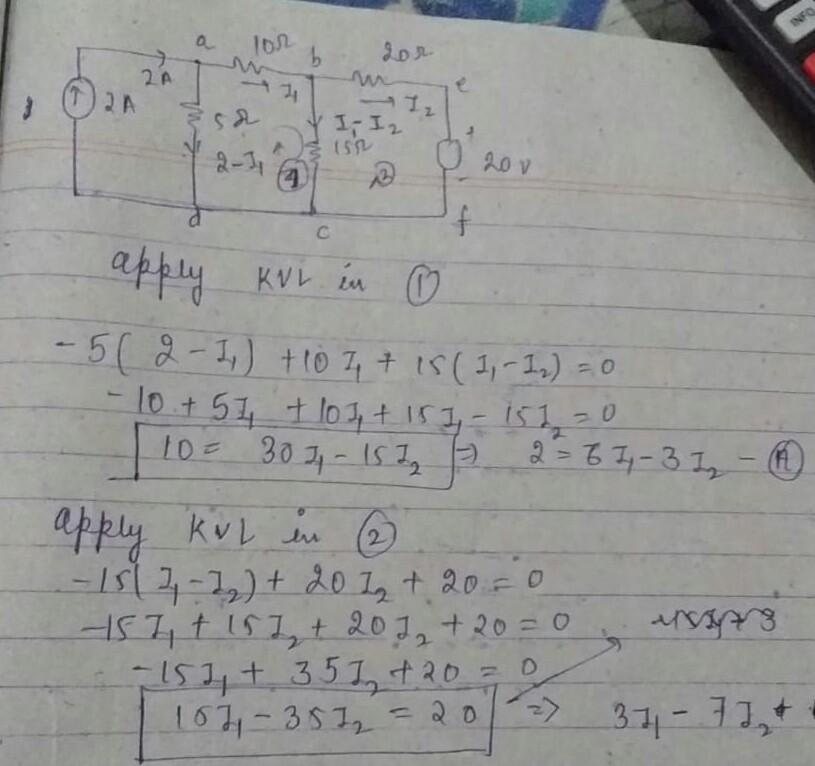 INFO
a 10Ω b 20Ω e
2A I₁ I₂
2A 5Ω I₁-I₂ +
2-I₁ 15Ω 20V
① ② -
d c f
apply KVL in ①
-5( 2-I₁) +10I₁ + 15(I₁-I₂) =0
-10 + 5I₁ +10I₁+15I₁-15I₂=0
10= 30I₁-15I₂ ⇒ 2=6I₁-3I₂ - Ⓐ
apply KVL in ②
-15(I₁-I₂)+ 20I₂ + 20 = 0
-15I₁ + 15I₂ + 20I₂ +20 = 0
-15I₁+ 35I₂+20 = 0
15I₁-35I₂ = 20 ⇒ 3I₁- 7I₂